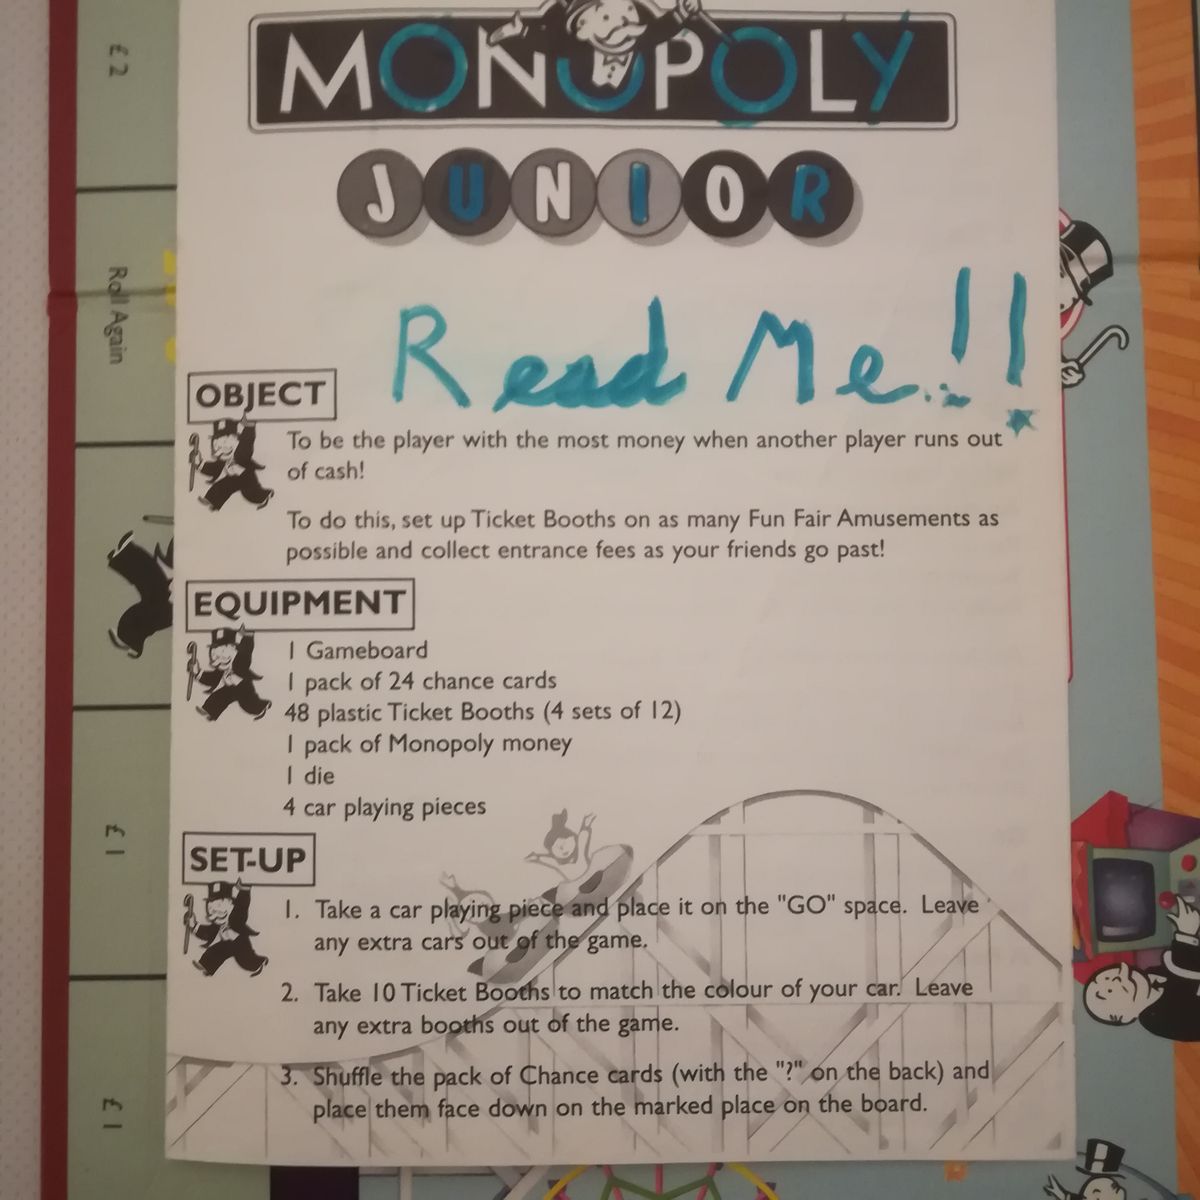 MONOPOLY
JUNIOR
Read Me!!
OBJECT
To be the player with the most money when another player runs out
of cash!
To do this, set up Ticket Booths on as many Fun Fair Amusements as
possible and collect entrance fees as your friends go past!
EQUIPMENT
1 Gameboard
1 pack of 24 chance cards
48 plastic Ticket Booths (4 sets of 12)
1 pack of Monopoly money
1 die
4 car playing pieces
SET-UP
1. Take a car playing piece and place it on the "GO" space. Leave
any extra cars out of the game.
2. Take 10 Ticket Booths to match the colour of your car. Leave
any extra booths out of the game.
3. Shuffle the pack of Chance cards (with the "?" on the back) and
place them face down on the marked place on the board.
£2
Roll Again
£1
£1